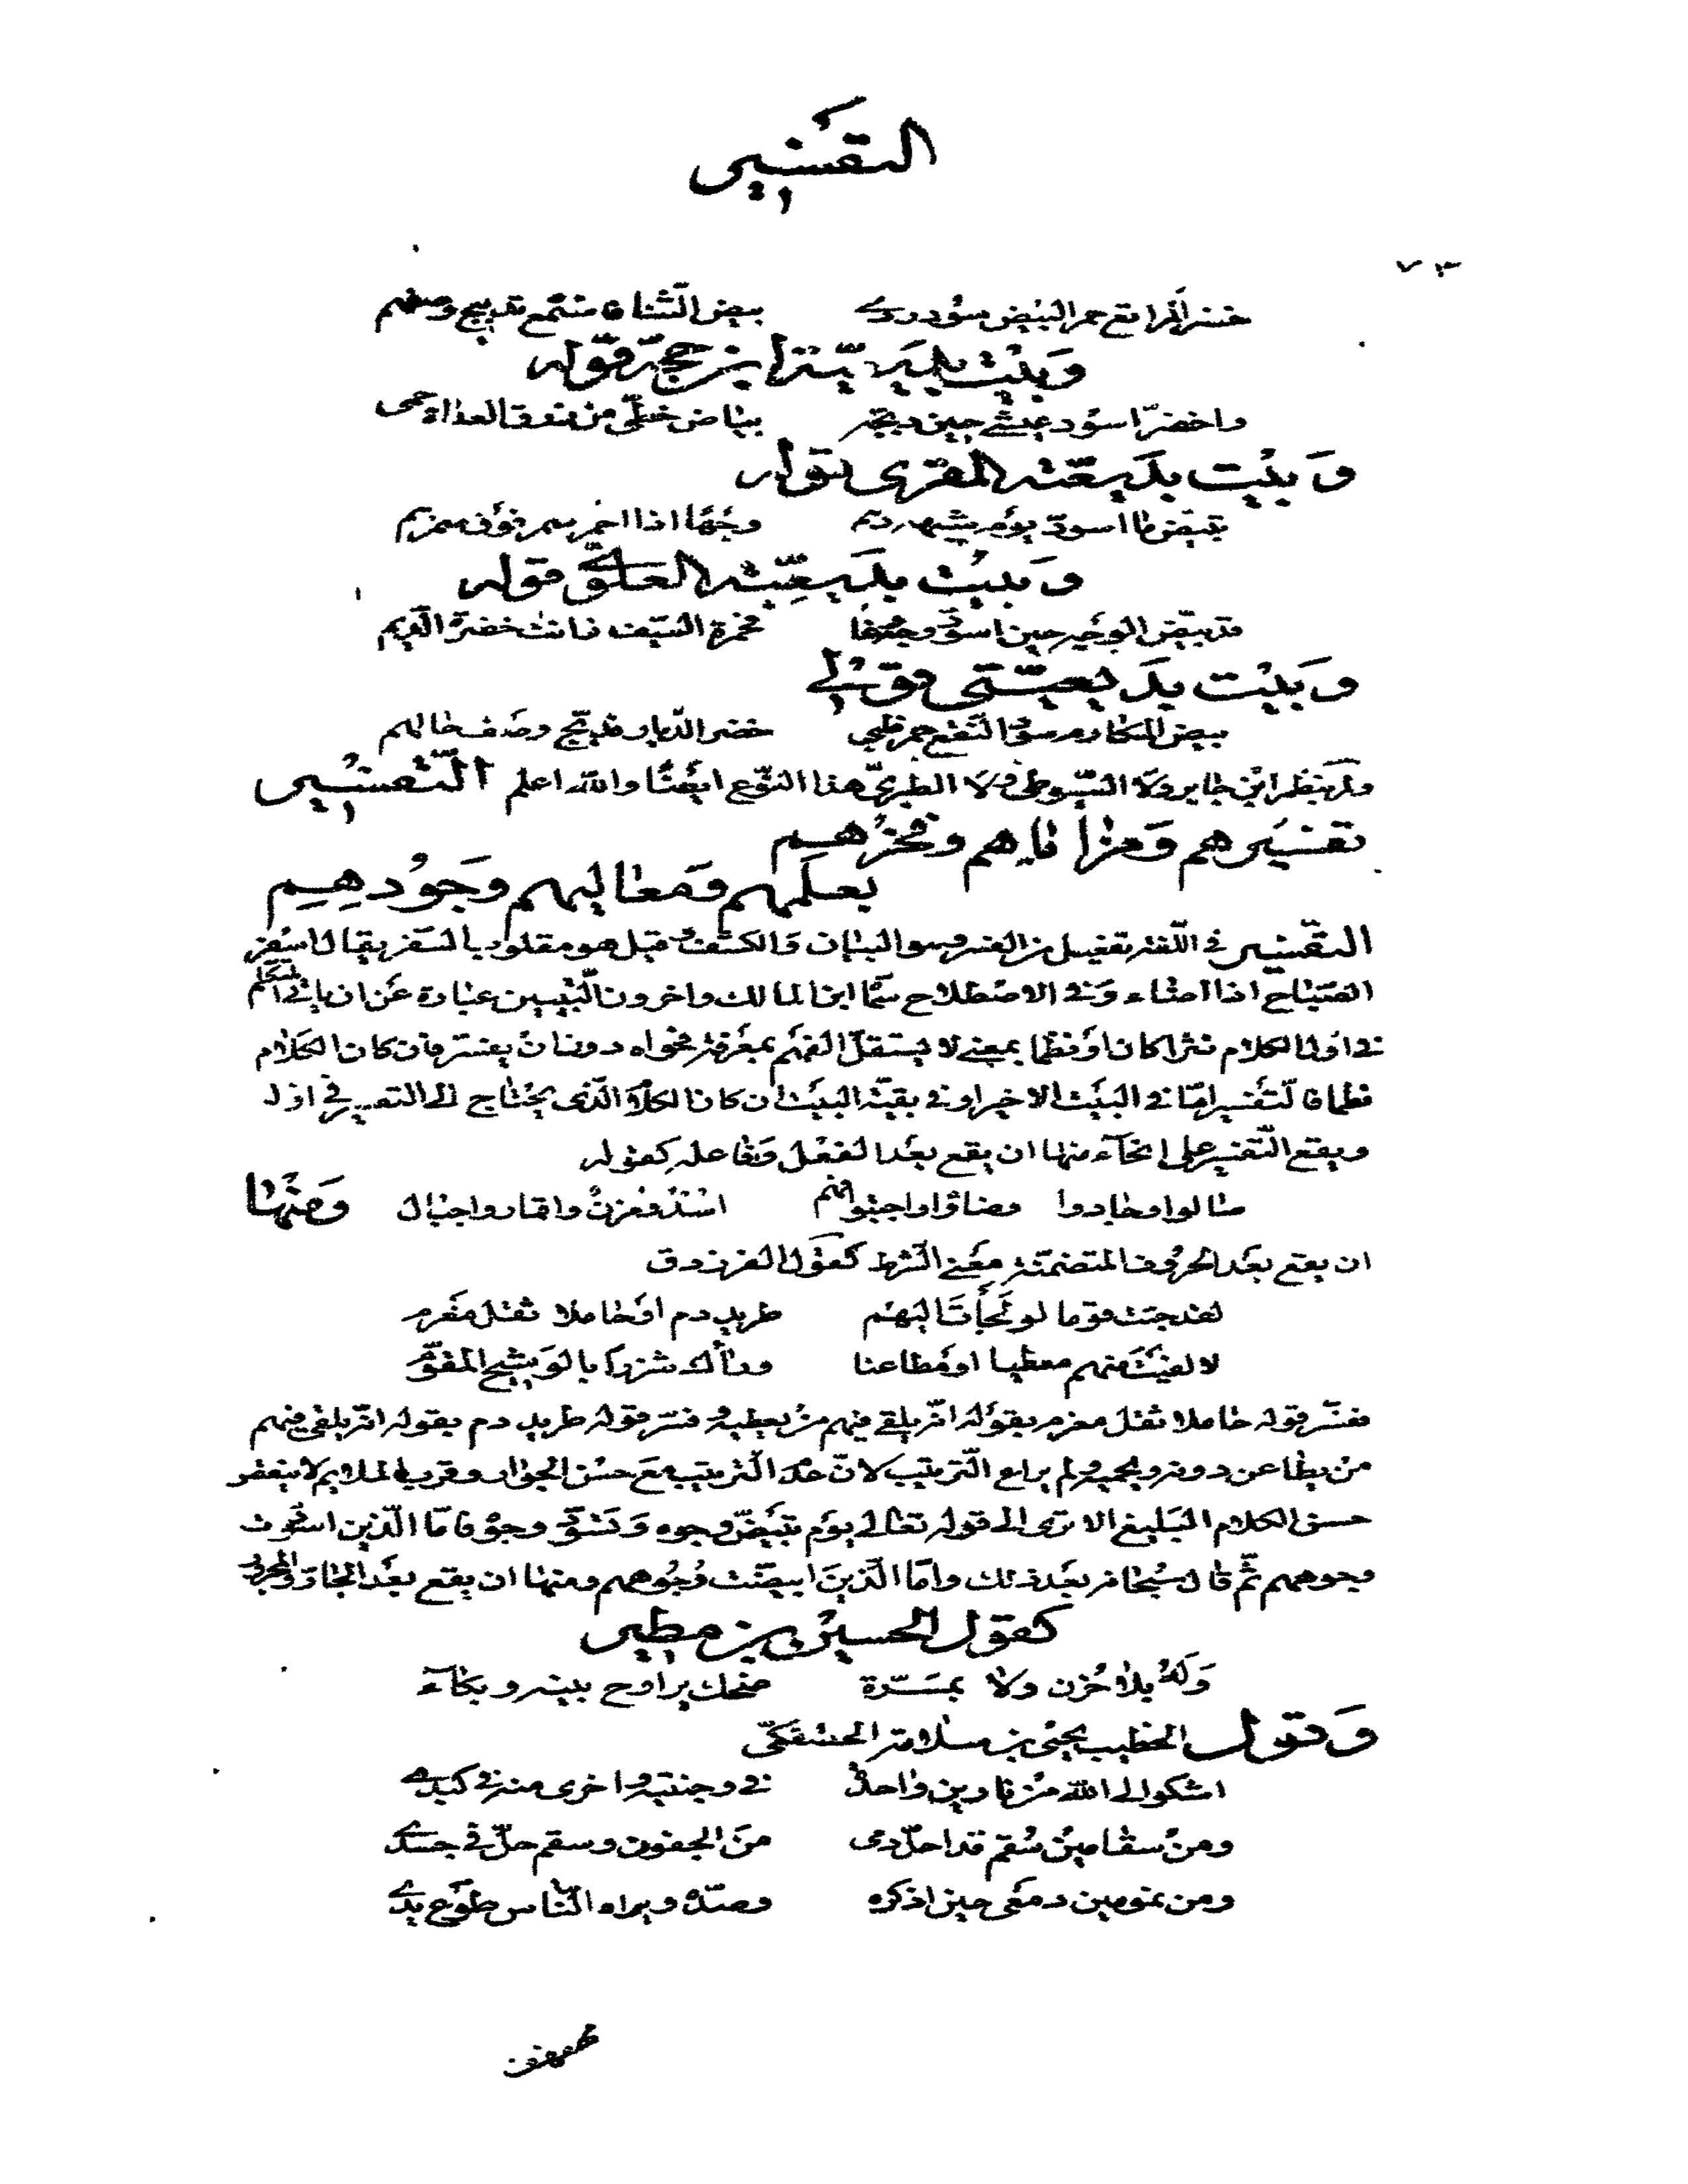 التفسير
٧٣
خضر المرابع حمر البيض سود ردى بيض الثنا فاستمع تدبيج وصفهم
وبيت بديعية ابن حجة قوله
واخضرّ اسود عيشي حين دبجه بياض حظي من زرق العداة حمى
وبيت بديعية المقري قوله
تبيض ما اسود يوم وجها اذا احمر سمر فوق
وبيت بديعية العلوي قوله
قد بيض الوجه حين اسود محمرة السيف فانت خضرة
وبيت بديعيتي قولي
بيض المكارم سود النقع حمر ظبى خضر الديار فدبّج وصف حالهم
ولم ينظم ابن جابر ولا السيوطي ولا الطبري هذا النوع ايضا والله اعلم التفسير
تفسيرهم ومزاياهم وفخرهم
بعلمهم ومعاليهم وجودهم
التفسير في اللغة تفعيل من الفسر وهو البيان والكشف وقيل هو مقلوب السفر يقال اسفر
الصباح اذا اضاء وفي الاصطلاح سمّاه ابن مالك واخرون التبيين عبارة عن ان ياتي المتكلم
في اول الكلام نثرا كان او نظما بمعنى لا يستقل الفهم بمعرفة فحواه دون ان يفسر فان كان الكلام
نظما فالتفسير امّا في البيت الاخير او في بقية البيت ان كان الكلام الذي يحتاج الى التفسير في اوله
ويقع التفسير على انحاء منها ان يقع بعد الفعل وفاعله كقوله
صالوا وجادوا وضاؤا واحتبوا فهم اسد ومزن واقمار واجبال ومنها
ان يقع بعد الحروف المتضمنة معنى الشرط كقول الفرزدق
لقد جئت قوما لو لجأت اليهم طريد دم او حاملا ثقل مغرم
لالفيت منهم معطيا او مطاعنا وراءك شزرا بالوشيج المقوّم
ففسّر قوله حاملا ثقل مغرم بقوله انه يلقى فيهم من يعطيه وفسر قوله طريد دم بقوله انه يلقى فيهم
من يطاعن دونه ويحميه ولم يراع الترتيب لانّ عدم الترتيب مع حسن الجوار وقرب الملايم لا ينقص
حسن الكلام البليغ الا ترى الى قوله تعالى يوم تبيضّ وجوه وتسودّ وجوه فامّا الذين اسودّت
وجوههم ثمّ قال سبحانه بعد ذلك وامّا الذين ابيضّت وجوههم ومنها ان يقع بعد الجار والمجرور
كقول الحسين بن مطير
وله بلا حزن ولا بمسرّة ضحك يراوح بينه وبكاء
وقول الخطيب يحيى بن سلامة الحصكفي
اشكو الى الله من نارين واحدة في وجنتيه واخرى منه في كبدي
ومن سقامين سقم قد احلّ دمي من الجفون وسقم حلّ في جسدي
ومن نمومين دمعي حين اذكره وصدّه ويراه الناس طوع يدي